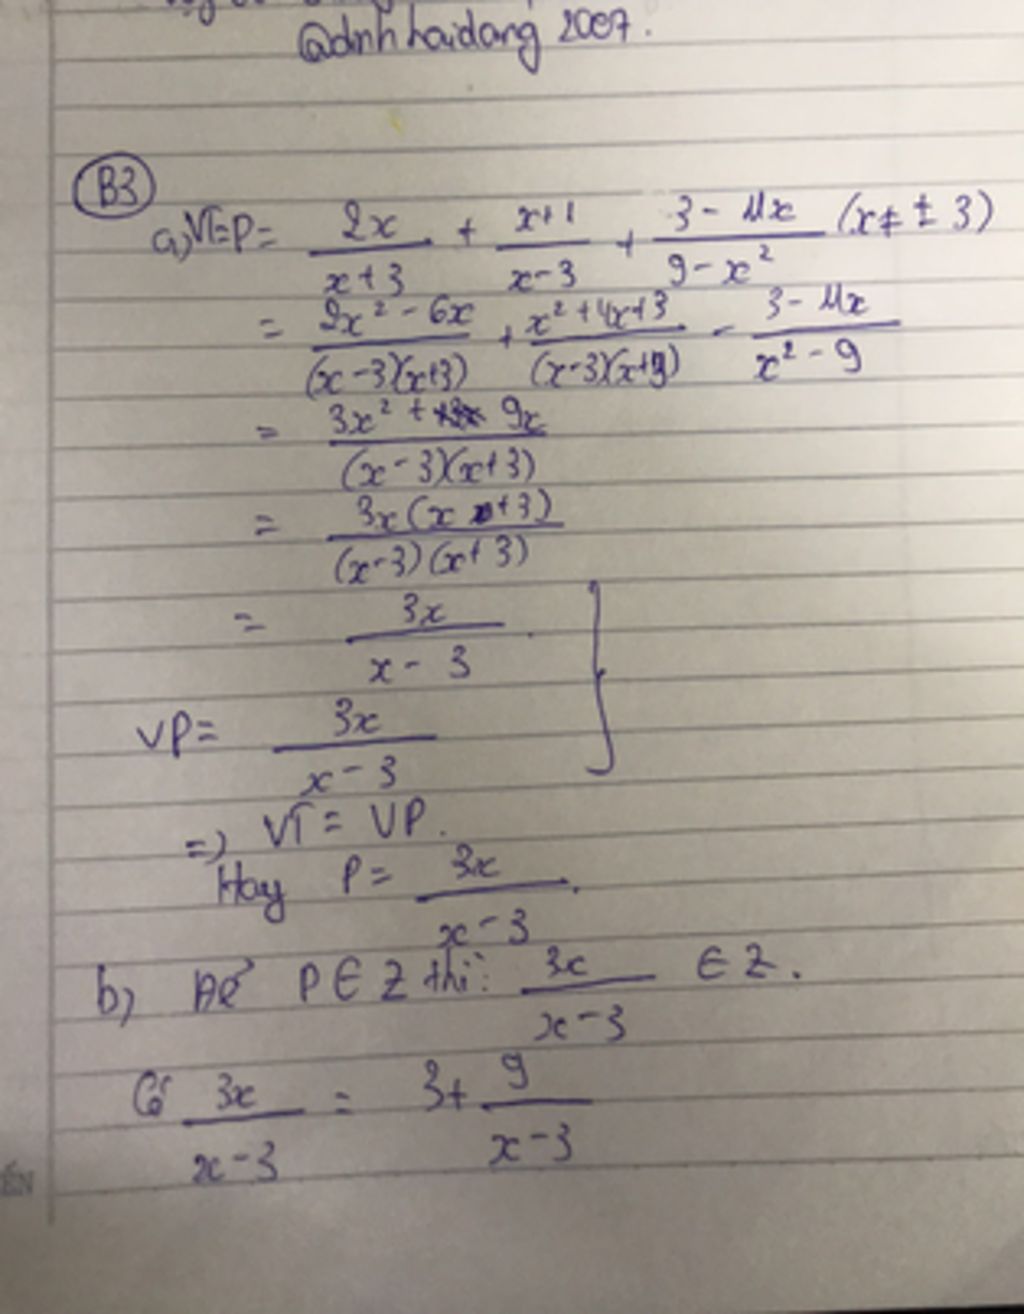 @dnhhaidang 2007.
B3
a) VT=P= 2x/(x+3) + (x+1)/(x-3) + (3-11x)/(9-x²) (x ≠ ± 3)
= (2x²-6x)/((x-3)(x+3)) + (x²+4x+3)/((x-3)(x+3)) - (3-11x)/(x²-9)
= (3x²+9x)/((x-3)(x+3))
= 3x(x+3)/((x-3)(x+3))
= 3x/(x-3)
VP= 3x/(x-3)
=) VT = VP.
Hay P= 3x/(x-3).
b) Để P∈Z thì: 3x/(x-3) ∈ Z.
Có 3x/(x-3) = 3+ 9/(x-3)